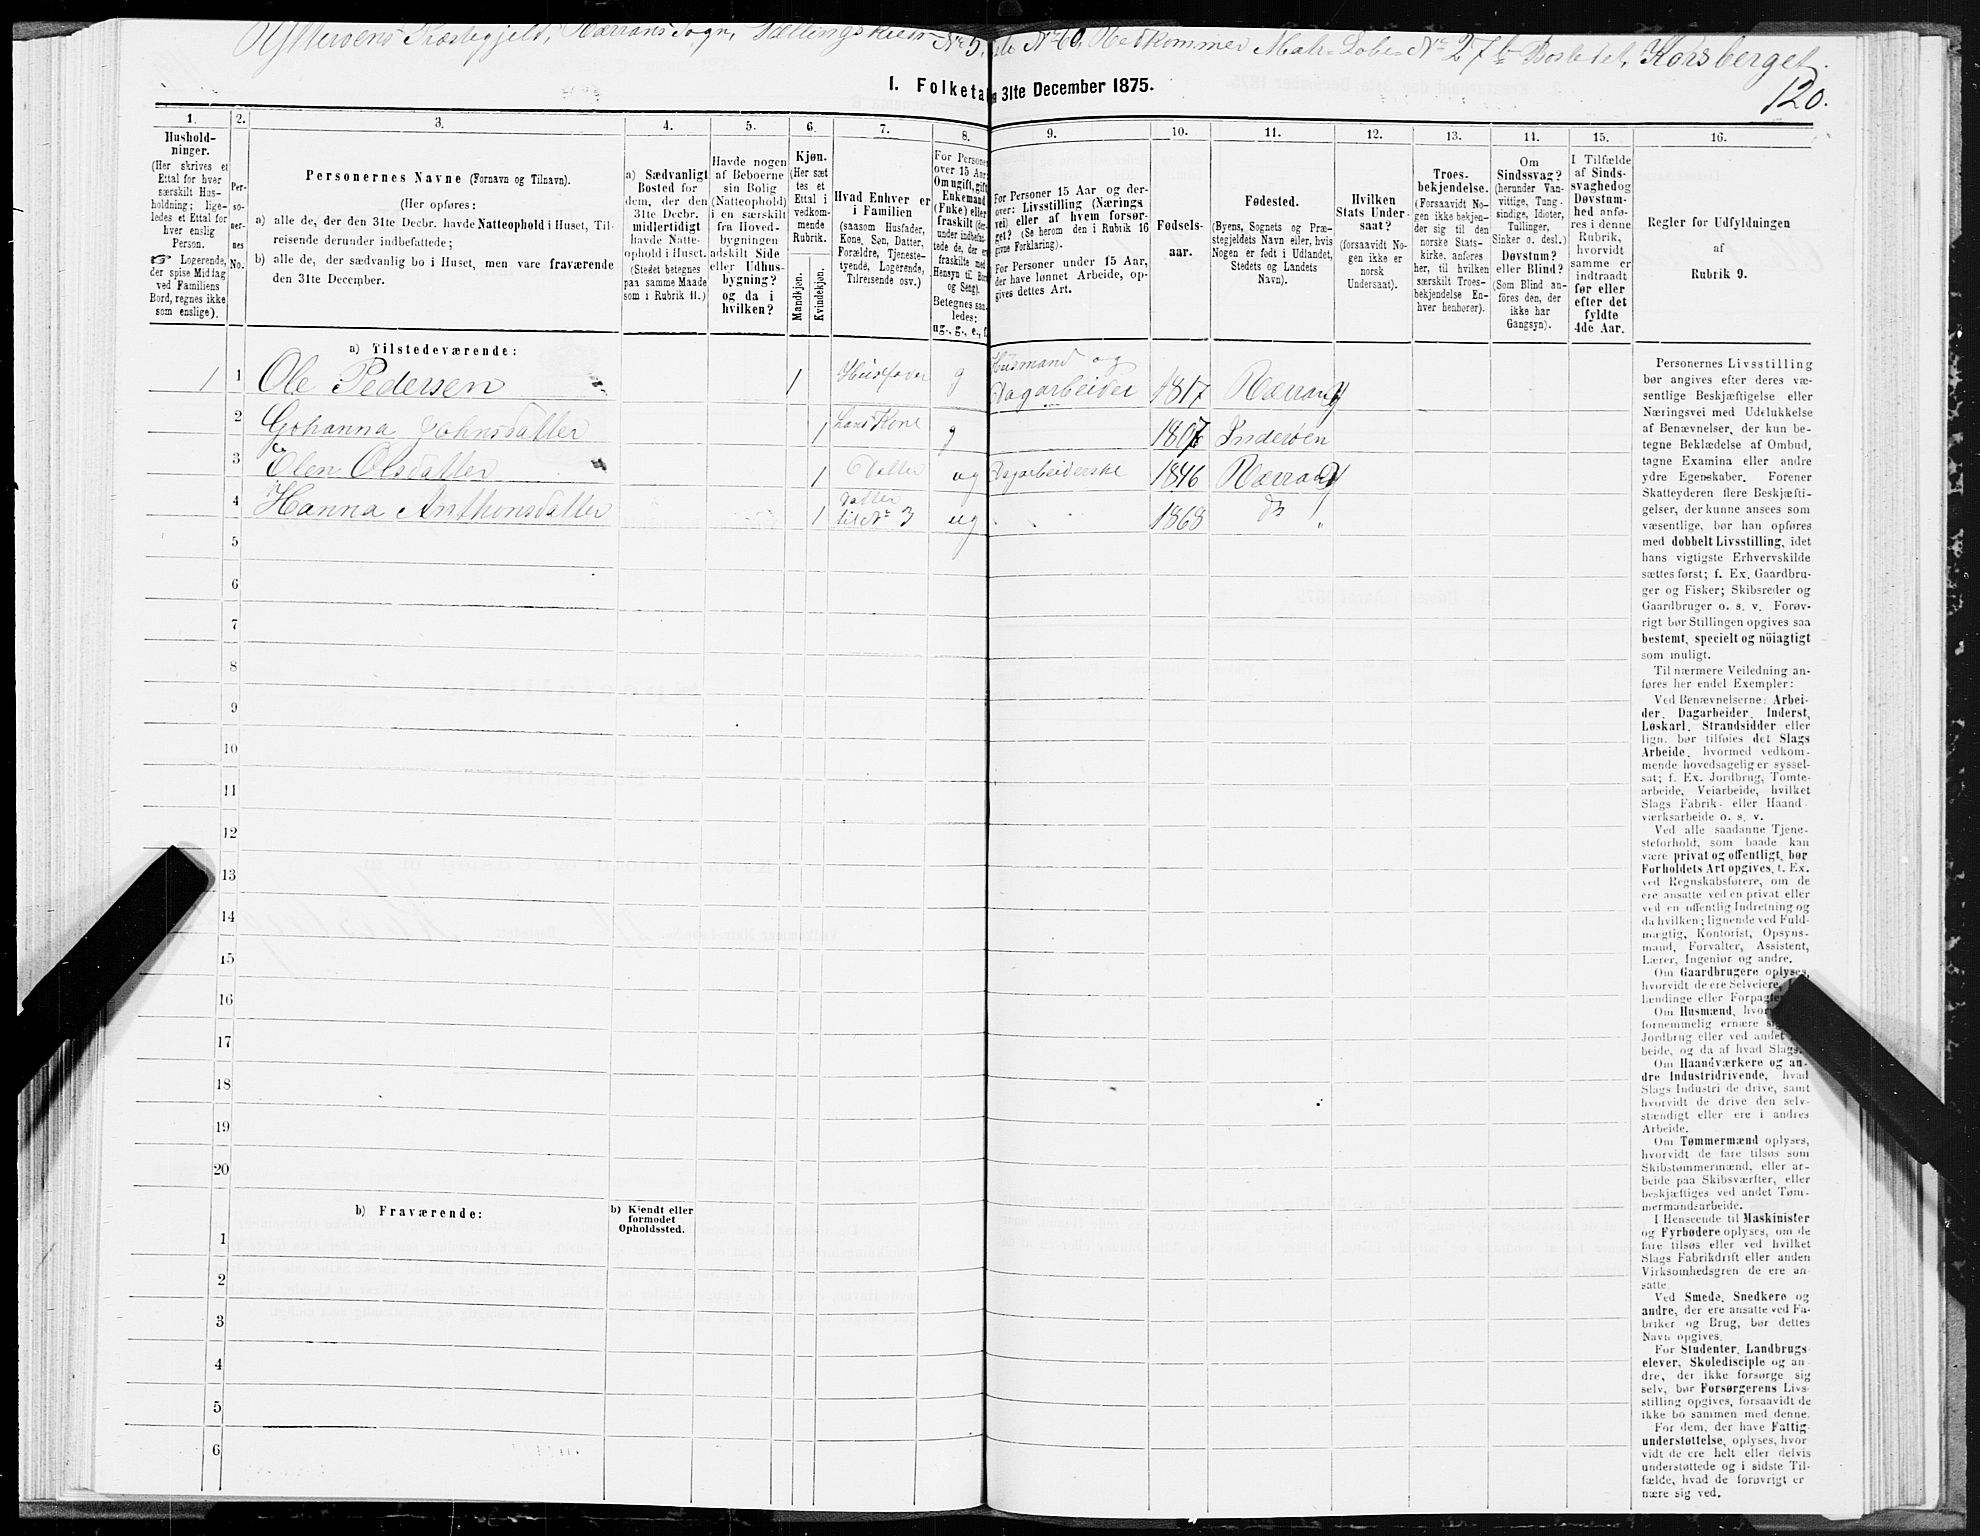 Ytterøens Præstegjeld, Værrans Sogn, Tællingskreds No 5, Liste No 60, Vedkommer Matr. Løbe-No 27b Bostedet, Korsberget.
120.
I. Folketal 31te December 1875.
1. 2. 3. 4. 5. 6. 7. 8. 9. 10. 11. 12. 13. 14. 15. 16.
Hushold-
ninger.
(Her skrives et
Ettal for hver
særskilt Hus-
holdning; lige-
ledes et Ettal for
hver enslig
Person.
☞ Logerende,
der spise Middag
ved Familiens
Bord, regnes ikke
som enslige).
Per-
so-
ner-
nes
No.
Personernes Navne (Fornavn og Tilnavn).
(Her opføres:
a) alle de, der den 31te Decbr. havde Natteophold i Huset, Til-
reisende derunder indbefattede;
b) alle de, der sædvanlig bo i Huset, men vare fraværende
den 31te December.
a) Sædvanligt
Bosted for
dem, der den
31te Decbr.
midlertidigt
havde Natte-
ophold i Huset.
(Stedet betegnes
paa samme Maade
som i Rubrik 11.)
Havde nogen
af Beboerne
sin Bolig
(Natteophold)
i en særskilt
fra Hoved-
bygningen
adskilt Side
eller Udhus-
bygning?
og da i
hvilken?
Kjøn.
(Her sæt
tes et
Ettal i
vedkom-
mende
Rubrik.
Mandkjøn.
Kvindekjøn.
Hvad Enhver er
i Familien
(saasom Husfader,
Kone, Søn, Datter,
Forældre, Tjeneste-
tyende, Logerende,
Tilreisende osv.)
For Personer
over 15 Aar:
Om ugift, gift,
Enkemand
(Enke) eller
fraskilt (der-
under indbefat-
tede de, der er
fraskilte med
Hensyn til Bord
og Seng).
Betegnes saa-
ledes:
ug., g., e., f.
For Personer 15 Aar og der-
over: Livsstilling (Nærings
vei) eller af hvem forsør-
get? (Se herom den i Rubrik 16
givne Forklaring).
For Personer under 15 Aar,
der have lønnet Arbeide, op-
gives dettes Art.
Fødsels-
aar.
Fødested.
(Byens, Sognets og Præ-
stegjeldets Navn eller, hvis
Nogen er født i Udlandet,
Stedets og Landets
Navn).
Hvilken
Stats Under-
saat?
(forsaavidt No-
gen ikke er
norsk
Undersaat).
Troes-
bekjendelse.
(Forsaavidt No-
gen ikke bekjen-
der sig til den
norske Stats-
kirke, anføres
her, til hvilken
særskilt Troes-
bekjendelse En-
hver henhører).
Om
Sindssvag?
(herunder Van-
vittige, Tung-
sindige, Idioter,
Tullinger,
Sinker o. desl.)
Døvstum?
eller Blind?
(Som Blind an-
føres den, der
ikke har
Gangsyn).
I Tilfælde
af Sinds-
svaghed og
Døvstum-
hed anfø-
res i denne
Rubrik,
hvorvidt
samme er
indtraadt
før eller
efter det
fyldte
4de Aar.
Regler for Udfyldningen
af
Rubrik 9.
a) Tilstedeværende:
1 1 Ole Pedersen 1 Husfader g Husmand og Dagarbeider 1817 Værran
2 Johanna Johnsdatter 1 hans Kone g 1807 Inderøen
3 Elen Olsdatter 1 Datter ug Dagarbeiderske 1846 Værran
4 Hanna Anthonsdatter 1 Datter til No 3 ug 1868 do
5
6
7
8
9
10
11
12
13
14
15
16
17
18
19
20
b) Fraværende:
b) Kjendt eller
formodet
Opholdssted.
1
2
3
4
5
6
Personernes Livsstilling
bør angives efter deres væ-
sentlige Beskjæftigelse eller
Næringsvei med Udelukkelse
af Benævnelser, der kun be-
tegne Beklædelse af Ombud,
tagne Examina eller andre
ydre Egenskaber. Forener
Skatteyderen flere Beskjæfti-
gelser, der kunne ansees som
væsentlige, bør han opføres
med dobbelt Livsstilling, idet
hans vigtigste Erhvervskilde
sættes først; f. Ex. Gaardbru-
ger og Fisker; Skibsreder og
Gaardbruger o. s. v. Forøv-
rigt bør Stillingen opgives saa
bestemt, specielt og nöiagtigt
som muligt.
Til nærmere Veiledning an-
føres her endel Exempler:
Ved Benævnelserne: Arbei-
der, Dagarbeider, Inderst,
Løskarl, Strandsidder eller
lign. bør tilføies det Slags
Arbeide, hvormed vedkom-
mende hovedsagelig er syssel-
sat; f. Ex. Jordbrug, Tomte-
arbeide, Veiarbeide, hvilket
Slags Fabrik- eller Haand-
værksarbeide o. s. v.
Ved alle saadanne Tjene-
steforhold, som baade kan
være privat og offentligt, bør
Forholdets Art opgives, t. Ex.
ved Regnskabsførere, om de
ere ansatte ved en privat eller
ved en offentlig Indretning og
da hvilken; lignende ved Fuld-
mægtig, Kontorist, Opsyns-
mand, Forvalter, Assistent,
Lærer, Ingeniør og andre.
Om Gaardbrugere oplyses,
hvorvidt de ere Selveiere,
lændinge eller
Om Husmænd,
fornemmelig ernære
Jordbrug eller ved andet
beide, og da af hvad Slags.
Om Haandværkere og an-
dre Industridrivende, hvad
Slags Industri de drive, samt
hvorvidt de drive den selv-
stændigt eller ere i andres
Arbeide.
Om Tømmermænd oplyses,
hvorvidt de fare tilsøs som
Skibstømmermænd, eller ar-
beide paa Skibsværfter, eller
beskjæftiges ved andet Tøm-
mermandsarbeide.
I Henseende til Maskinister
og Fyrbødere oplyses, om de
fare tilsøs eller ved hvilket
Slags Fabrikdrift eller anden
Virksomhedsgren de ere an-
satte
Ved Smede, Snedkere og
andre, der ere ansatte ved Fa-
briker og Brug, bør dettes
Navn opgives.
For Studenter, Landbrugs-
elever, Skoledisciple og an-
dre, der ikke forsørge sig
selv, bør Forsørgerens Livs-
stilling opgives, forsaavidt de
ikke bo sammen med denne.
For dem, der have Fattig-
understøttelse, oplyses, hvor-
vidt de ere helt eller delvis
understøttede og i sidste Til-
fælde, hvad de forøvrigt er
nære sig ved.